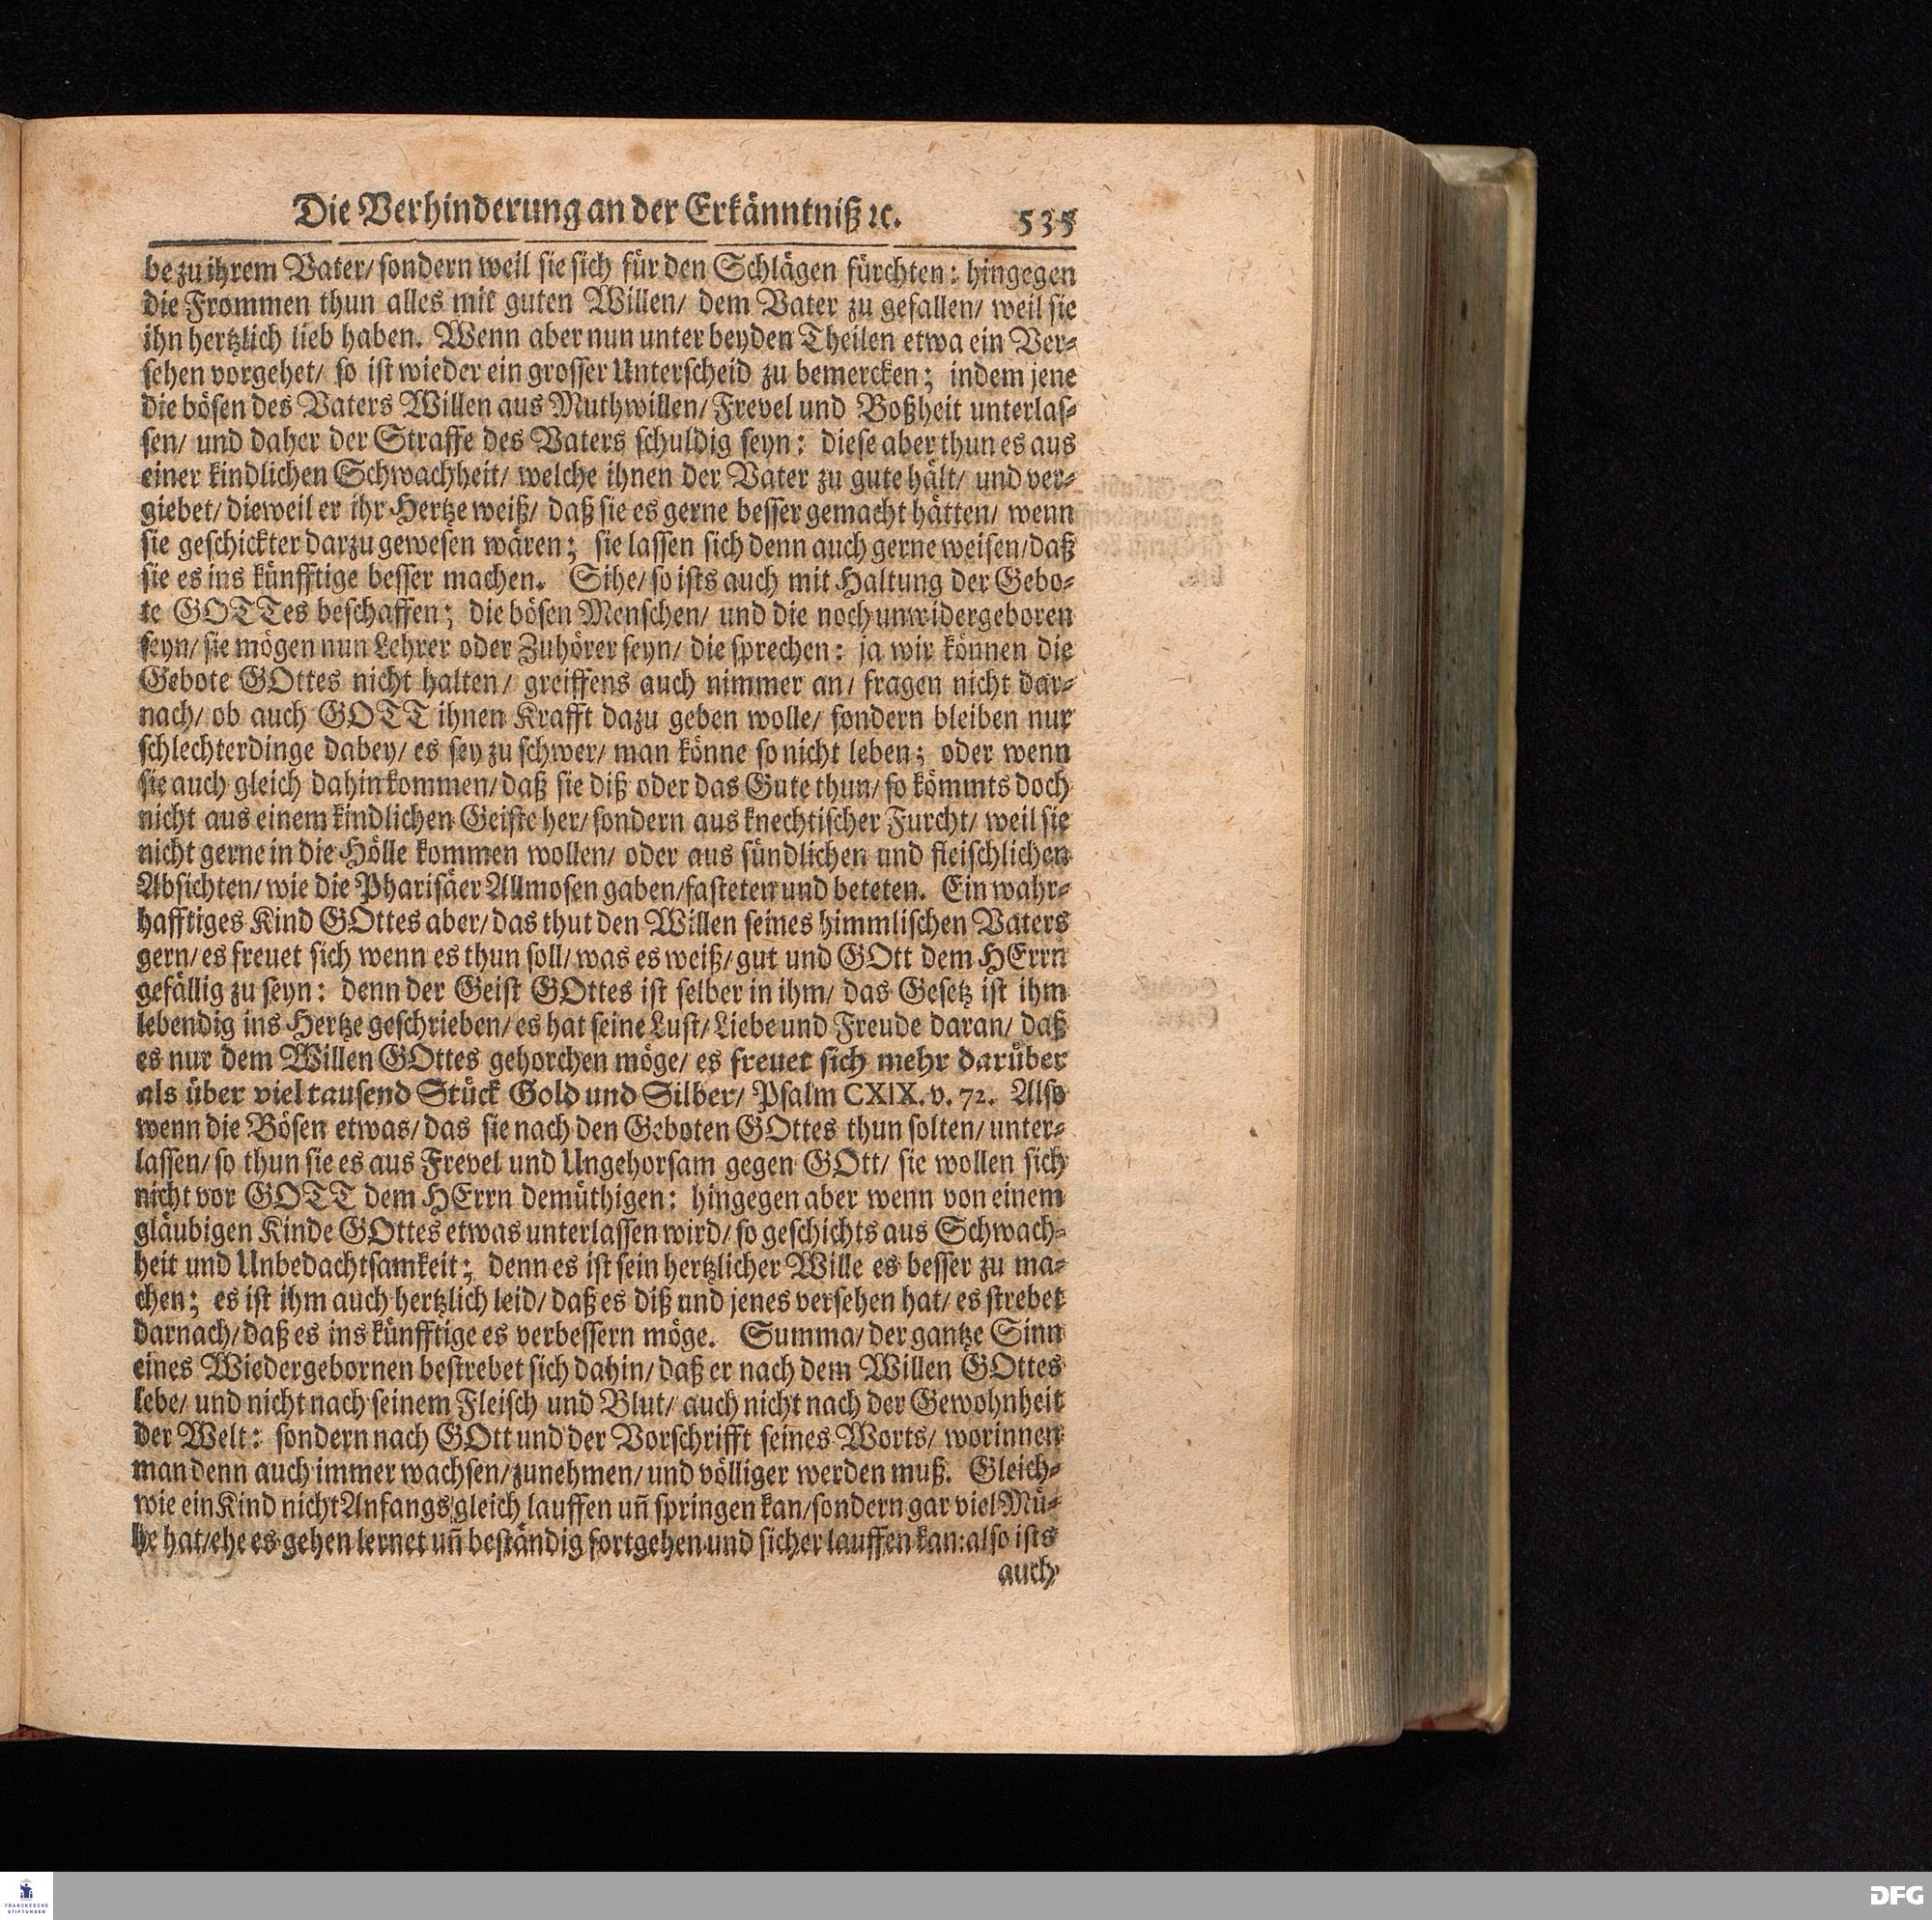 Die Verhinderung an der Erkänntniß ꝛc. 535
be zu ihrem Vater/ sondern weil sie sich für den Schlägen fürchten: hingegen
die Frommen thun alles mit guten Willen/ dem Vater zu gefallen/ weil sie
ihn hertzlich lieb haben. Wenn aber nun unter beyden Theilen etwa ein Ver-
sehen vorgehet/ so ist wieder ein grosser Unterscheid zu bemercken; indem jene
die bösen des Vaters Willen aus Muthwillen/ Frevel und Boßheit unterlas-
sen/ und daher der Straffe des Vaters schuldig seyn: diese aber thun es aus
einer kindlichen Schwachheit/ welche ihnen der Vater zu gute hält/ und ver-
giebet/ dieweil er ihr Hertze weiß/ daß sie es gerne besser gemacht hätten/ wenn
sie geschickter darzu gewesen wären; sie lassen sich denn auch gerne weisen/ daß
sie es ins künfftige besser machen. Sihe/ so ists auch mit Haltung der Gebo-
te GOTTes beschaffen; die bösen Menschen/ und die noch unwidergeboren
seyn/ sie mögen nun Lehrer oder Zuhörer seyn/ die sprechen: ja wir können die
Gebote GOttes nicht halten/ greiffens auch nimmer an/ fragen nicht dar-
nach/ ob auch GOTT ihnen Krafft dazu geben wolle/ sondern bleiben nur
schlechterdinge dabey/ es sey zu schwer/ man könne so nicht leben; oder wenn
sie auch gleich dahin kommen/ daß sie diß oder das Gute thun/ so kömmts doch
nicht aus einem kindlichen Geiste her/ sondern aus knechtischer Furcht/ weil sie
nicht gerne in die Hölle kommen wollen/ oder aus sündlichen und fleischlichen
Absichten/ wie die Pharisäer Allmosen gaben/ fasteten und beteten. Ein wahr-
hafftiges Kind GOttes aber/ das thut den Willen seines himmlischen Vaters
gern/ es freuet sich wenn es thun soll/ was es weiß/ gut und GOtt dem HErrn
gefällig zu seyn: denn der Geist GOttes ist selber in ihm/ das Gesetz ist ihm
lebendig ins Hertze geschrieben/ es hat seine Lust/ Liebe und Freude daran/ daß
es nur dem Willen GOttes gehorchen möge/ es freuet sich mehr darüber
als über viel tausend Stück Gold und Silber/ Psalm CXIX. v. 72. Also
wenn die Bösen etwas/ das sie nach den Geboten GOttes thun solten/ unter-
lassen/ so thun sie es aus Frevel und Ungehorsam gegen GOtt/ sie wollen sich
nicht vor GOTT dem HErrn demüthigen: hingegen aber wenn von einem
gläubigen Kinde GOttes etwas unterlassen wird/ so geschichts aus Schwach-
heit und Unbedachtsamkeit; denn es ist sein hertzlicher Wille es besser zu ma-
chen; es ist ihm auch hertzlich leid/ daß es diß und jenes versehen hat/ es strebet
darnach/ daß es ins künfftige es verbessern möge. Summa/ der gantze Sinn
eines Wiedergebornen bestrebet sich dahin/ daß er nach dem Willen GOttes
lebe/ und nicht nach seinem Fleisch und Blut/ auch nicht nach der Gewohnheit
der Welt: sondern nach GOtt und der Vorschrifft seines Worts/ worinnen
man denn auch immer wachsen/ zunehmen/ und völliger werden muß. Gleich-
wie ein Kind nicht Anfangs gleich lauffen uñ springen kan/ sondern gar viel Mü-
he hat/ ehe es gehen lernet uñ beständig fortgehen und sicher lauffen kan: also ists
auch
FRANCKESCHE
STIFTUNGEN
DFG